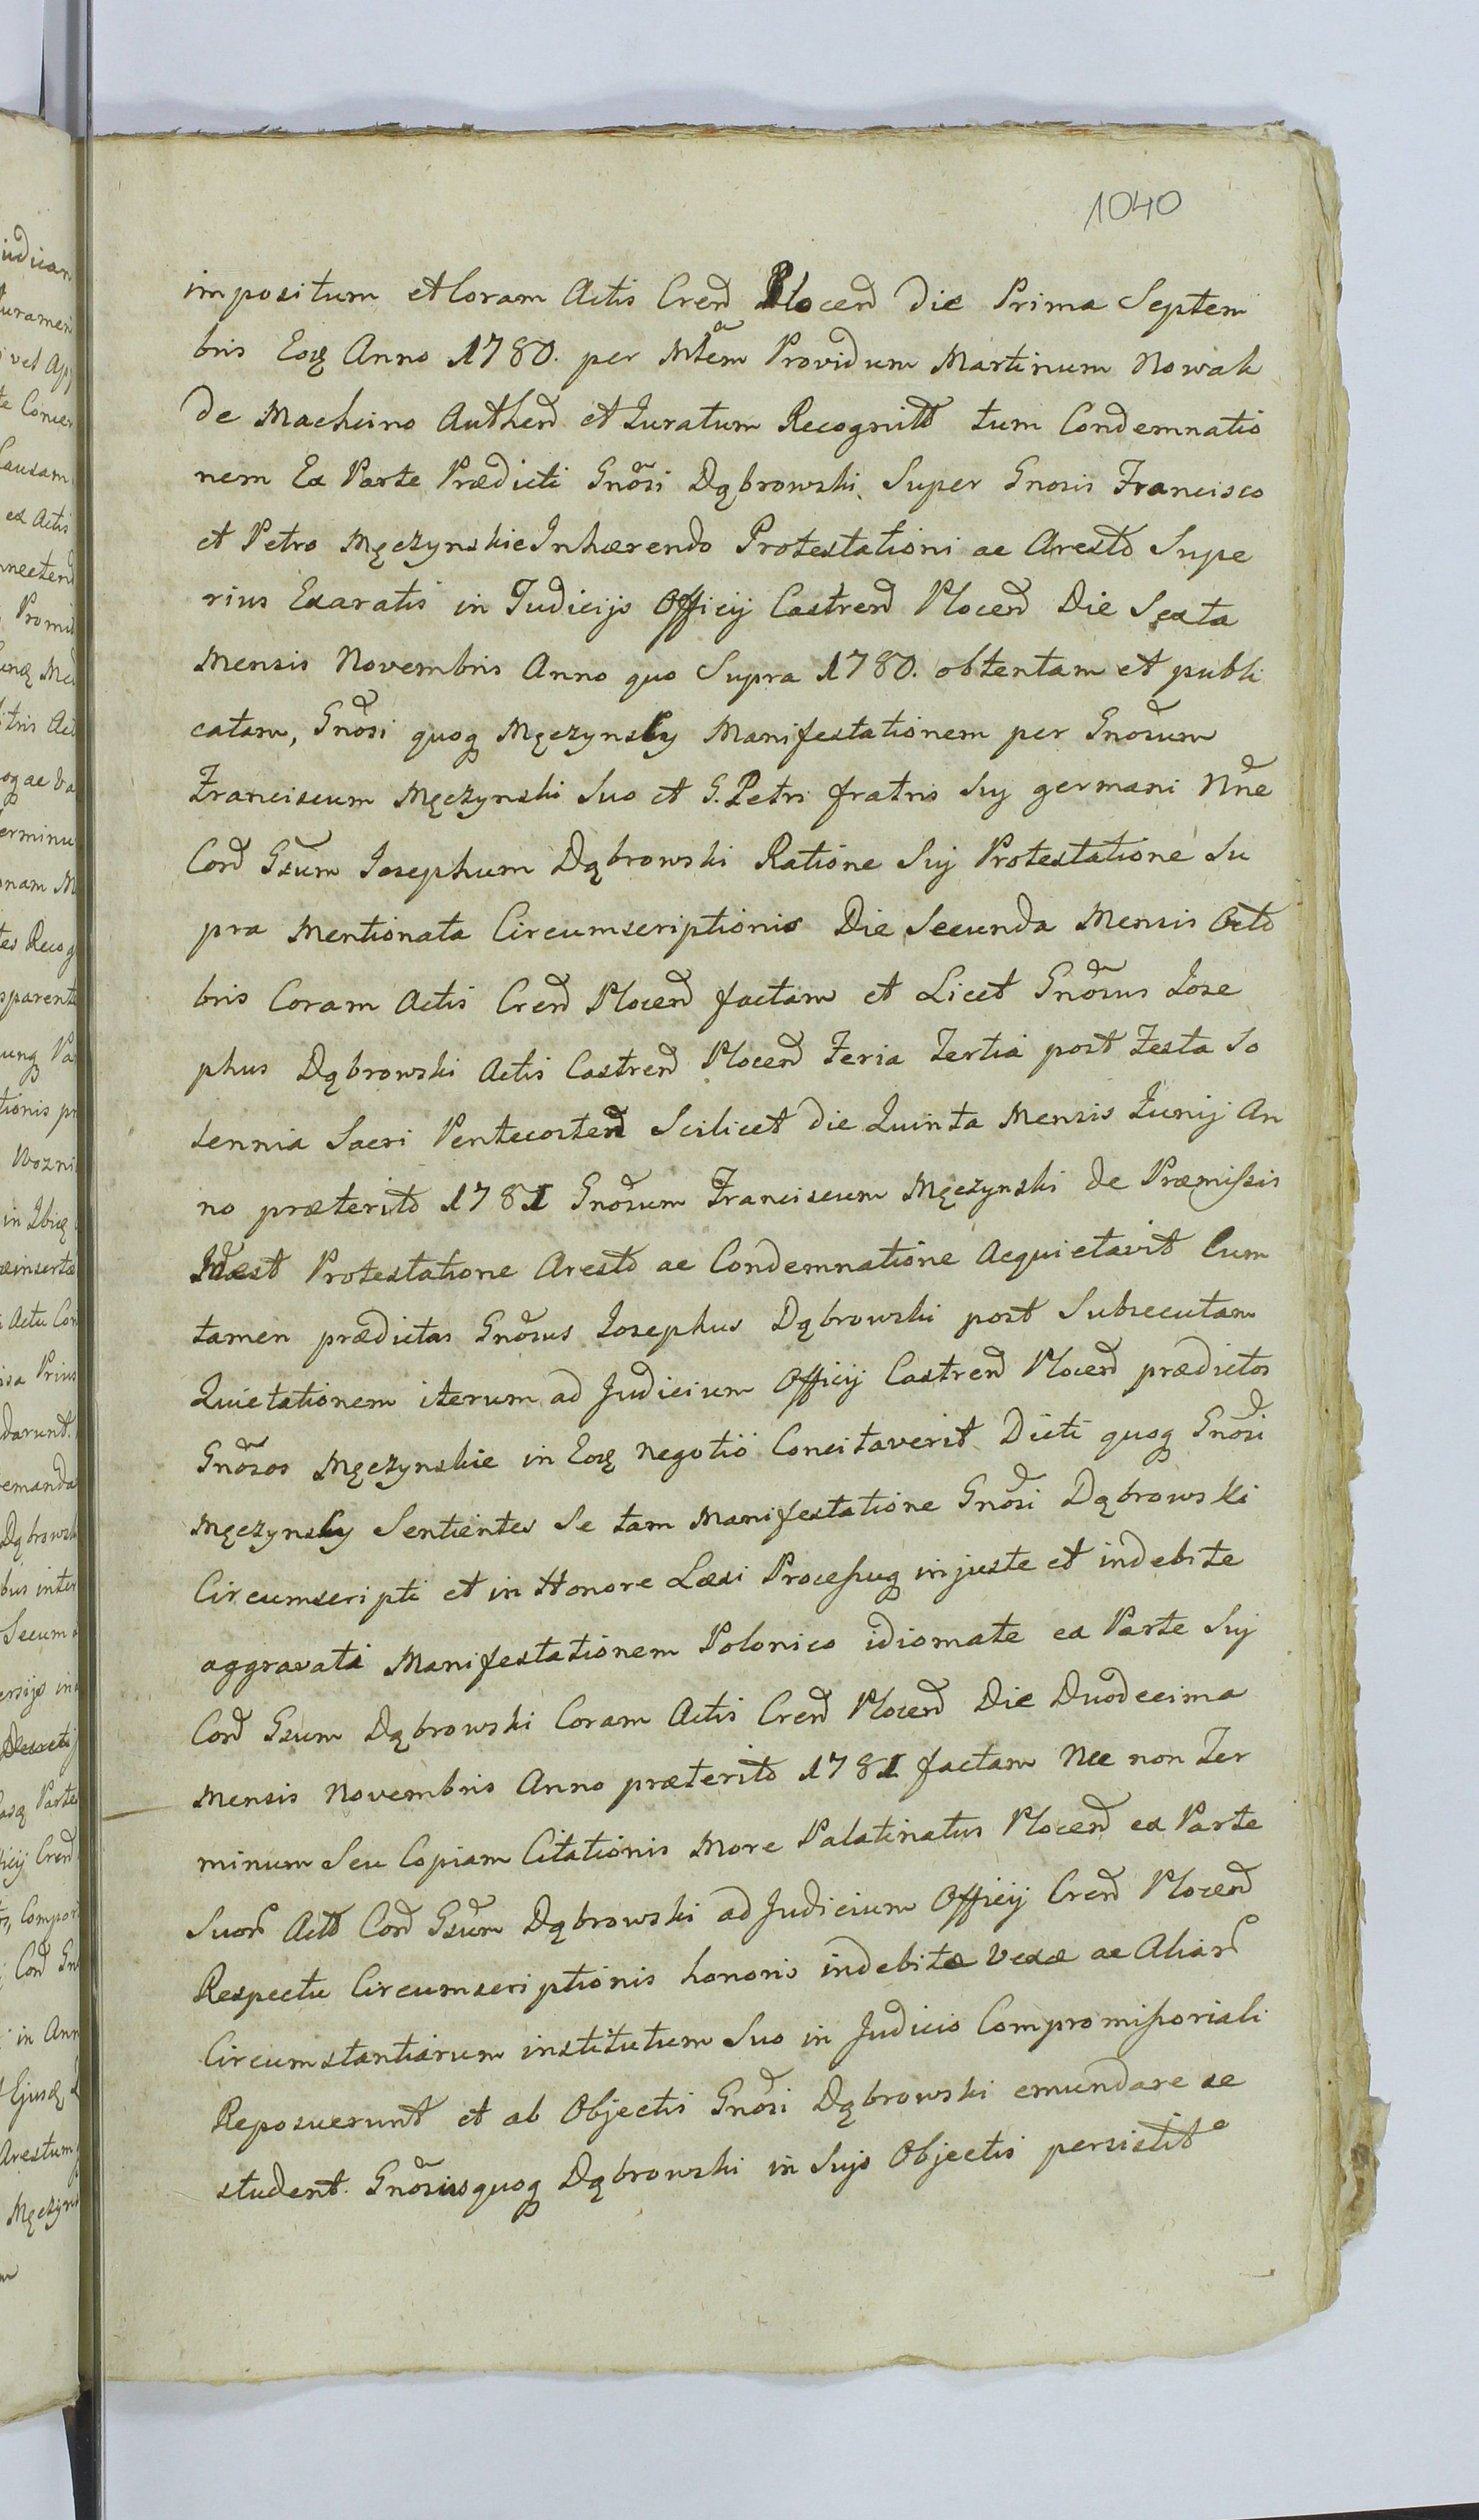 1040
impositum et Coram Actis Cren̄ Plocen̄ die Prima Septem
bris Eoq̨ Anno 1780. per Mtem Providum Martinum Nowak
de Machcino Authen̄ et Juratum Recognitt tum Condemnatio
nem Ex Parte Prædicti Gnosi Dąbrowski Super Gnosis Francisco
et Petro Męczynskie Inhærendo Protestationi ac Aresto Supe
rius Exaratis in Judicijs Officij Castren̄ Plocen̄ Die Sexta
Mensis Novembris Anno quo Supra 1780. obtentam et publi
catam, Gnosi quoq̨ Męczynscy Manifestationem per Gnosum
Franciscum Męczynski Suo et G. Petri fratris Suj germani Nne
Con̄ Gsum Josephum Dąbrowski Ratione Suj Protestatione Su
pra Mentionata Circumscriptionis Die Secunda Mensis Octo
bris Coram Actis Cren̄ Plocen̄ factam et Licet Gnosus Jose
phus Dąbrowski Actis Castren̄ Plocen̄ Feria Tertia post Festa So
lennia Sacri Pentecosten̄ Scilicet die Quinta Mensis Junij An
no præterito 1781 Gnosum Franciscum Męczynski de Præmissis
Idest Protestatione Aresto ac Condemnatione Acquietavit Cum
tamen prædictas Gnosus Josephus Dąbrowski post Subsecutam
Quietationem iterum ad Judicium Officij Castren̄ Plocen̄ prædictos
Gnosos Męczynskie in Eoq̨ negotio Concitaverit Dicti quoq̨ Gnosi
Męczynscy Sentientes Se tam Manifestatione Gnosi Dąbrowski
Circumscripti et in Honore Læsi Processuq̨ injuste et indebite
aggravati Manifestationem Polonico idiomate ex Parte Suj
Con̄ Gsum Dąbrowski Coram Actis Cren̄ Plocen̄ Die Duodecima
Mensis Novembris Anno præterito 1781 factam Nec non Ter
minum Seu Copiam Citationis More Palatinatus Plocen̄ ex Parte
Suor̄ Act Con̄ Gsum Dąbrowski ad Judicium Officij Cren̄ Plocen̄
Respectu Circumscriptionis honoris indebitæ vexæ ac Aliar̄
Circumstantiarum institutum Suo in Judicio Compromissoriali
Reposuerunt et ab Objectis Gnosi Dąbrowski emundare se
student. Gnosus quoq̨ Dąbrowski in Sujs Objectis persistit